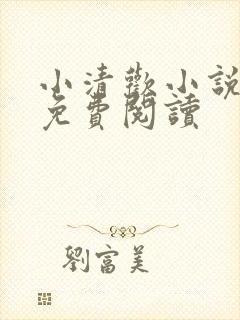 小清歡小說
免費閱讀
劉富美